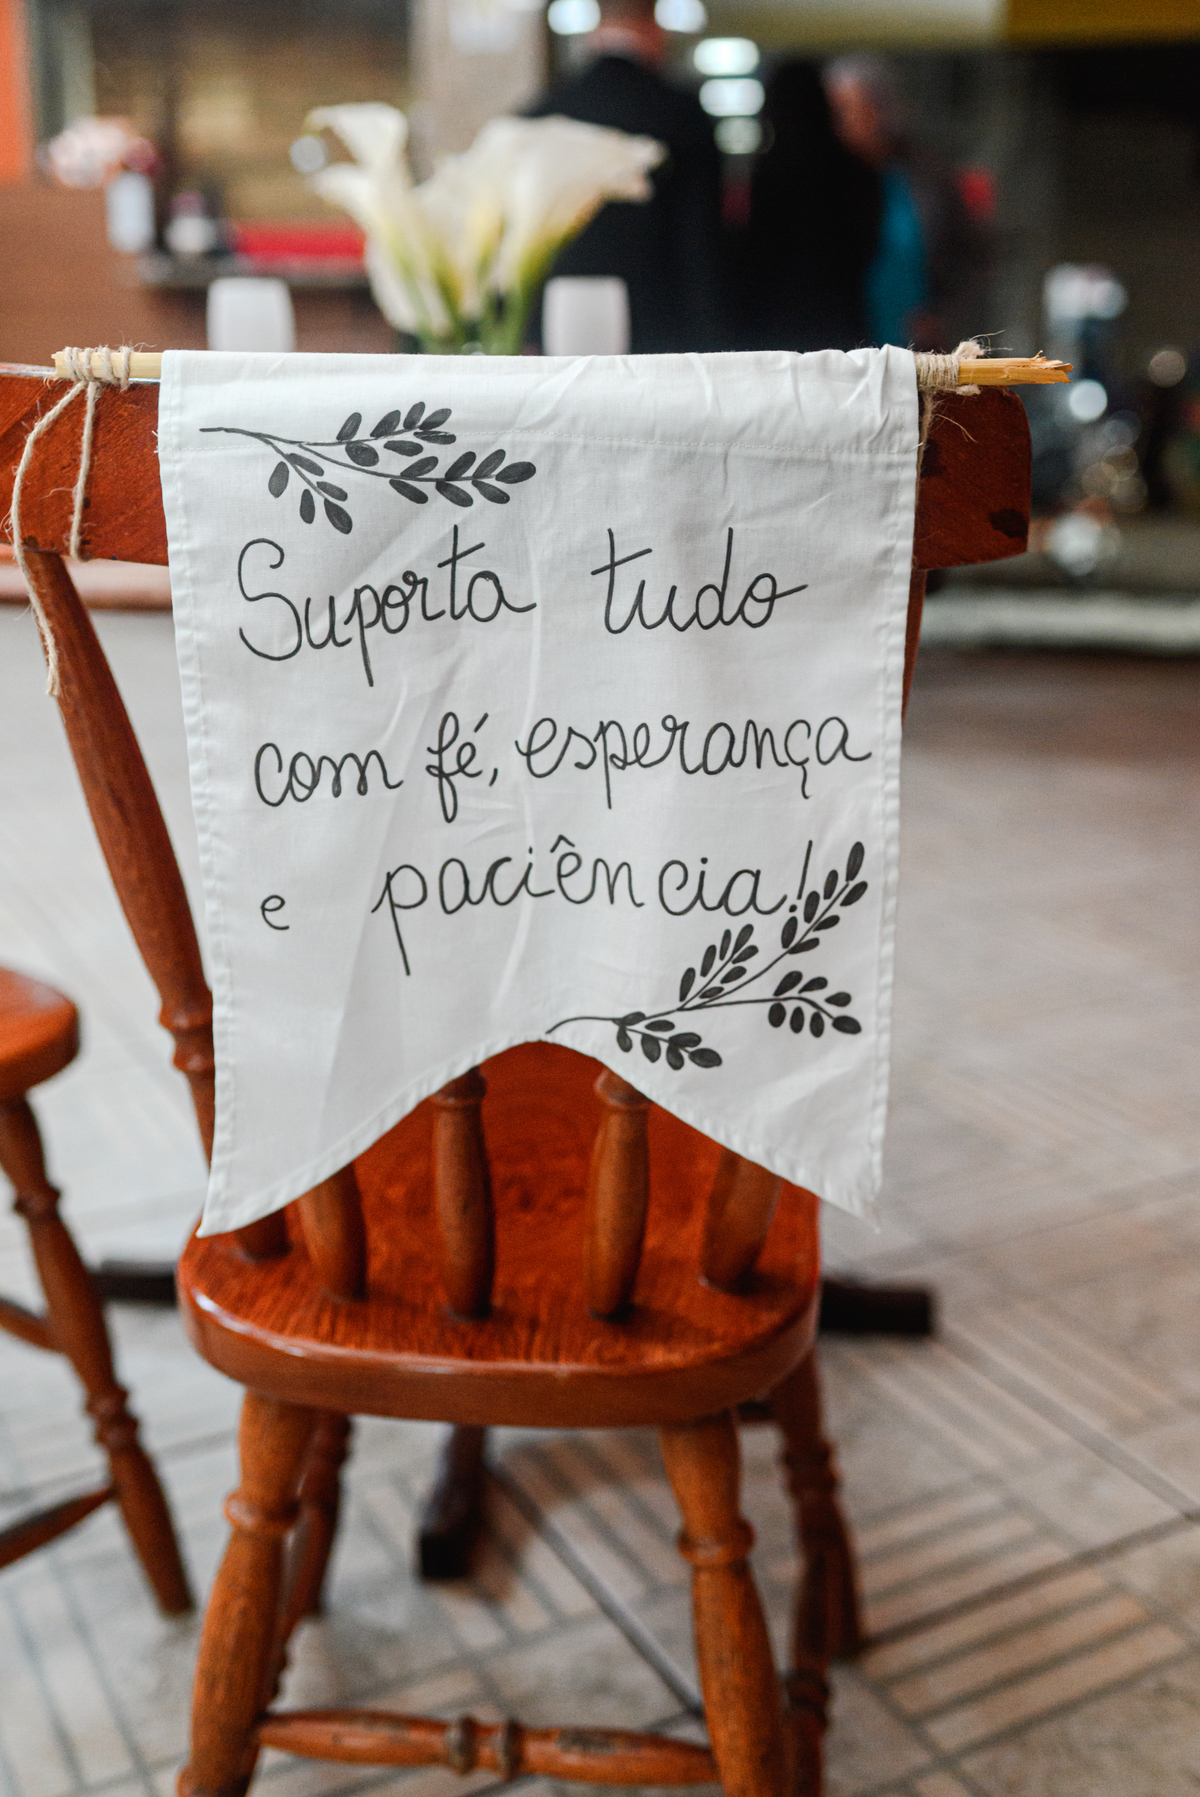 Suporta tudo
com fé, esperança
e paciência!